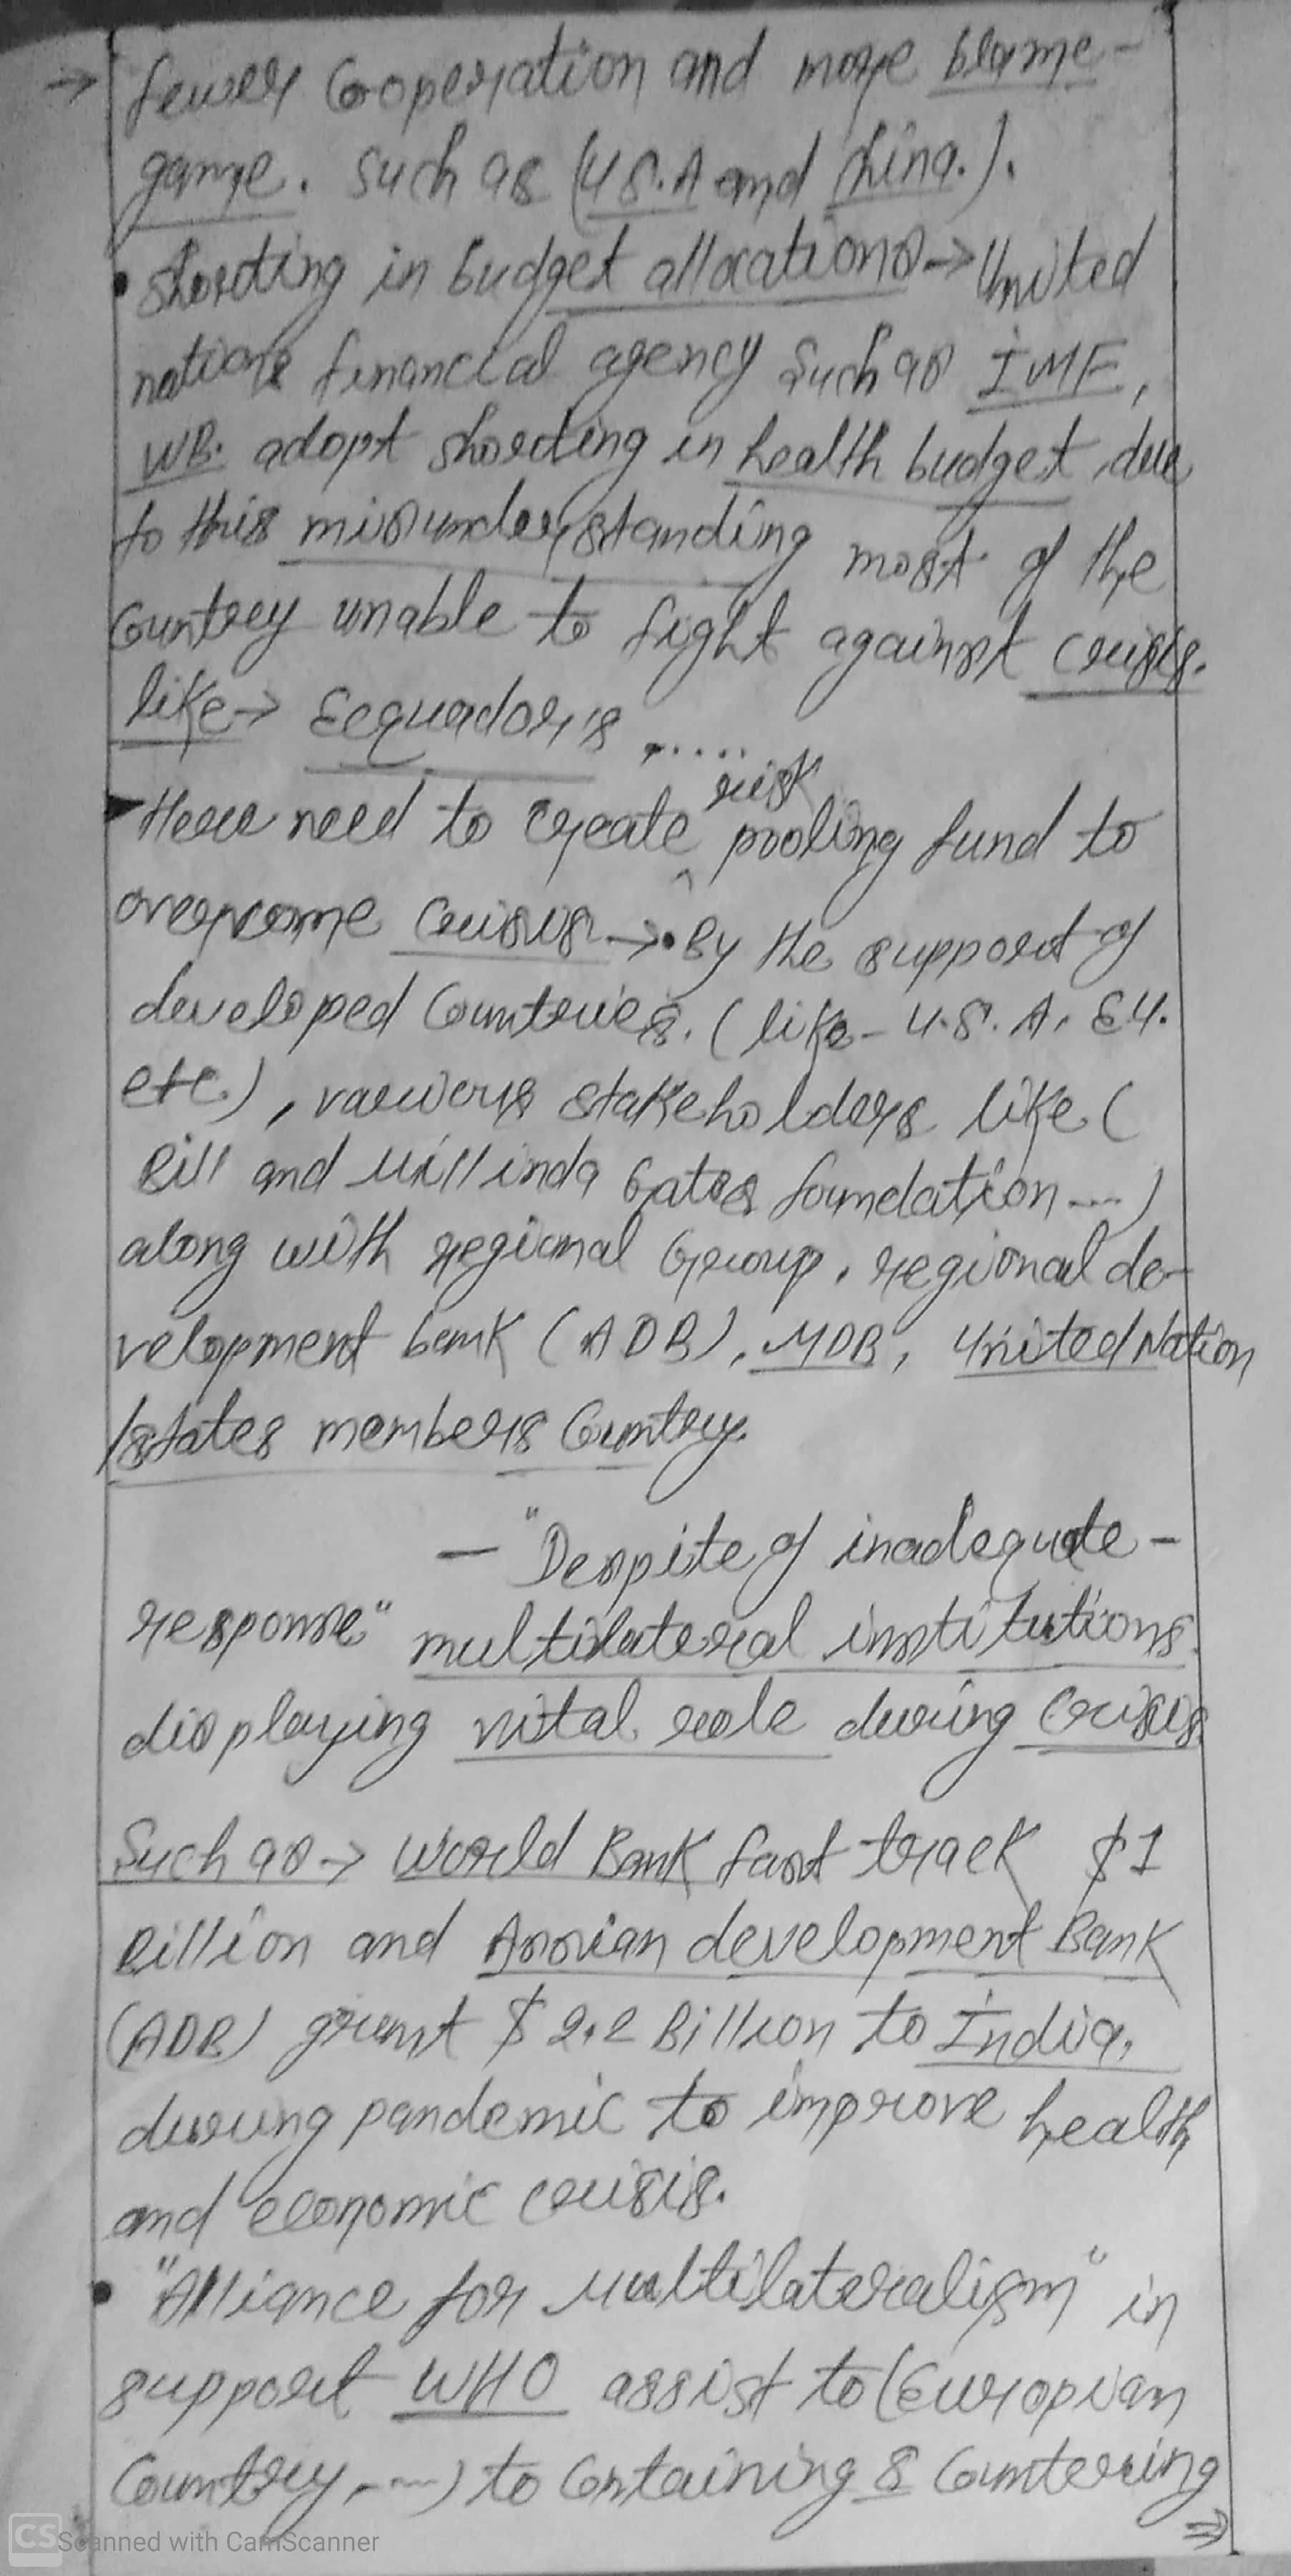 → fewer Cooperation and more blame-
game. Such as (U.S.A and China.).
• Shorting in budget allocations → United
nations financial agency such as IMF,
WB. adopt shorting in health budget, due
to this misunderstanding most of the
Country unable to fight against crisis.
like → Ecquador's .....
risk
Here need to create ^ pooling fund to
overcome crisis → • By the support of
developed Countries. (like - U.S.A, EU.
etc.), various stakeholders like (
Bill and Millinda Gates foundation ...)
along with regional Group, regional de-
velopment bank (ADB), MDB, United Nation
/states members Country.
— "Despite of inadequate -
response" multilateral institutions
displaying vital role during crisis.
Such as → World Bank fast track $1
Billion and Assian development Bank
(ADB) grant $2.2 Billion to India,
during pandemic to improve health
and economic crisis.
• "Alliance for Multilateralism" in
support WHO assist to (Europian
Country, ---) to Containing & Countering
⇒
CS Scanned with CamScanner